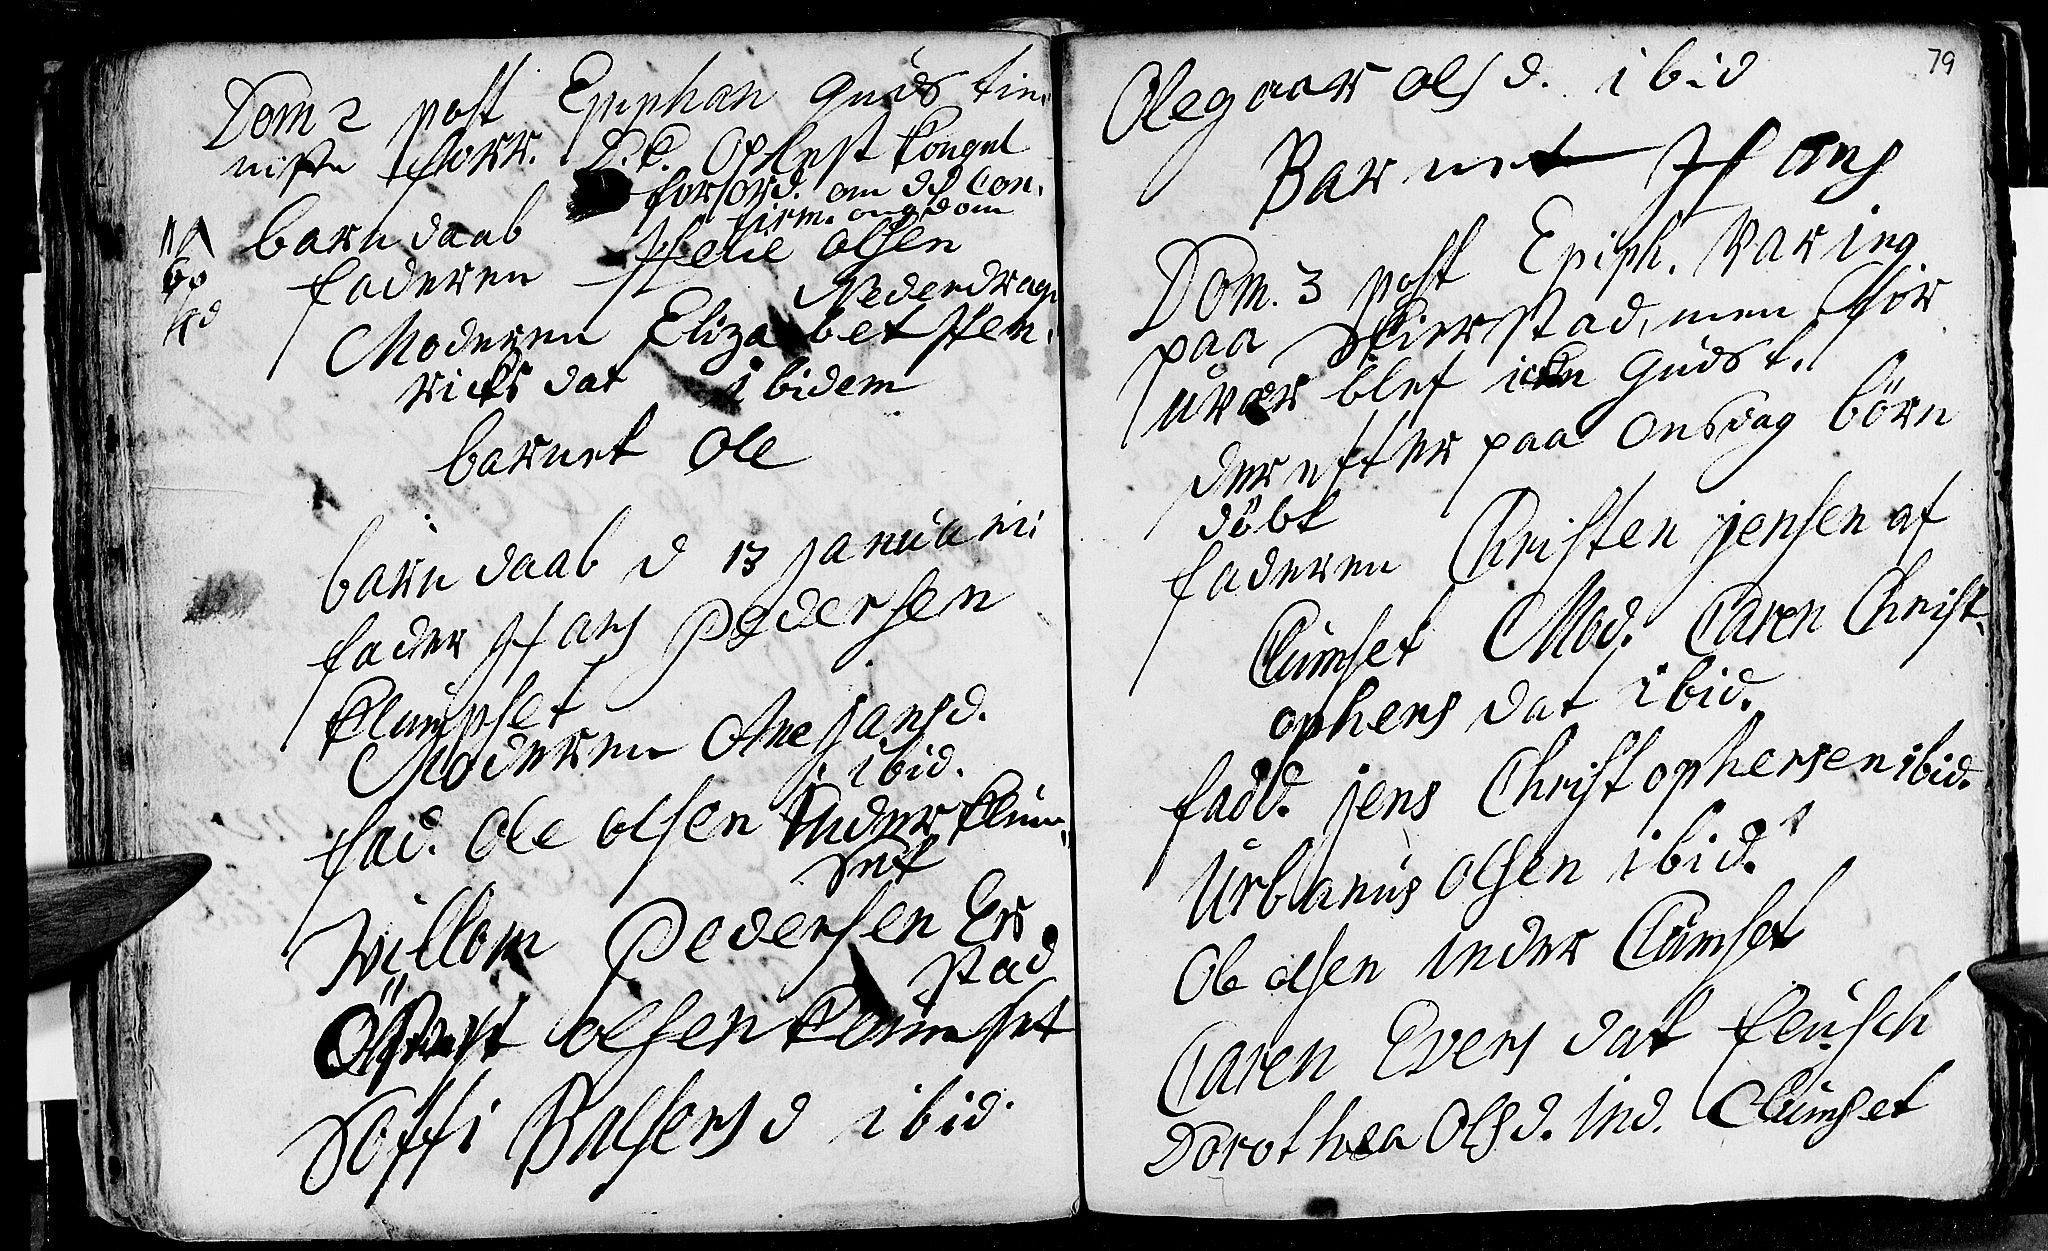 Dom 2 post Epiphan Guds tie-
niste forr. D. k. Oplest kongel
forord. om des Con-
firm. ungdom
barn daab
faderen Helie Olsen
Nederdrage
Moderen Elizabet Hen-
richs dat ibidem
barnet Ole
barn daab d 13 januarii
fader Hans Pedersen
klumpset
Moderen Ane jansd.
ibid.
fad. Ole olsen inder klum-
set
Willom Pedersen Er
stad
olsen klumset
Soffi Balsersd ibid.
79
Olegaar ols d. ibid
Barnet Hans
Dom. 3 post Epiph. Var ing
paa Skierstad, men for
uvær blef icke Guds t.
derefter paa Onsdag börn
döbt
faderen Christen jensen af
Clumset Mod. Caren Christ-
ophers dat ibid.
fadd. jens Christophersen ibid.
Urbanus Olsen ibid.
Ole olsen inder Clumset
Caren Evers dat fleusch
Dorothea Olsd. ind. Clumset